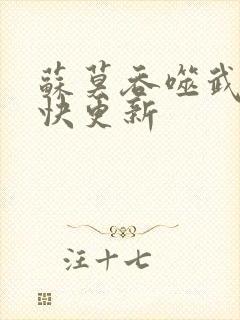 蘇莫吞噬武
快更新
汪十七